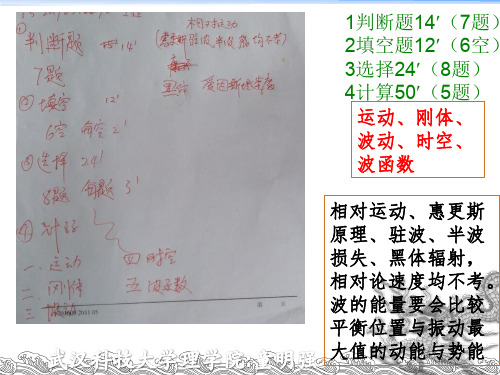 ① 判断题 14'
7题
② 填空 12'
6空 每空2'
③ 选择 24'
8题 每题3'
④ 计算
一. 运动 四 时空
二. 刚体 五 波函数
三
1判断题14′（7题）
2填空题12′（6空）
3选择24′（8题）
4计算50′（5题）
运动、刚体、
波动、时空、
波函数
相对运动、惠更斯
原理、驻波、半波
损失、黑体辐射，
相对论速度均不考。
波的能量要会比较
平衡位置与振动最
大值的动能与势能
武汉科技大学理学院